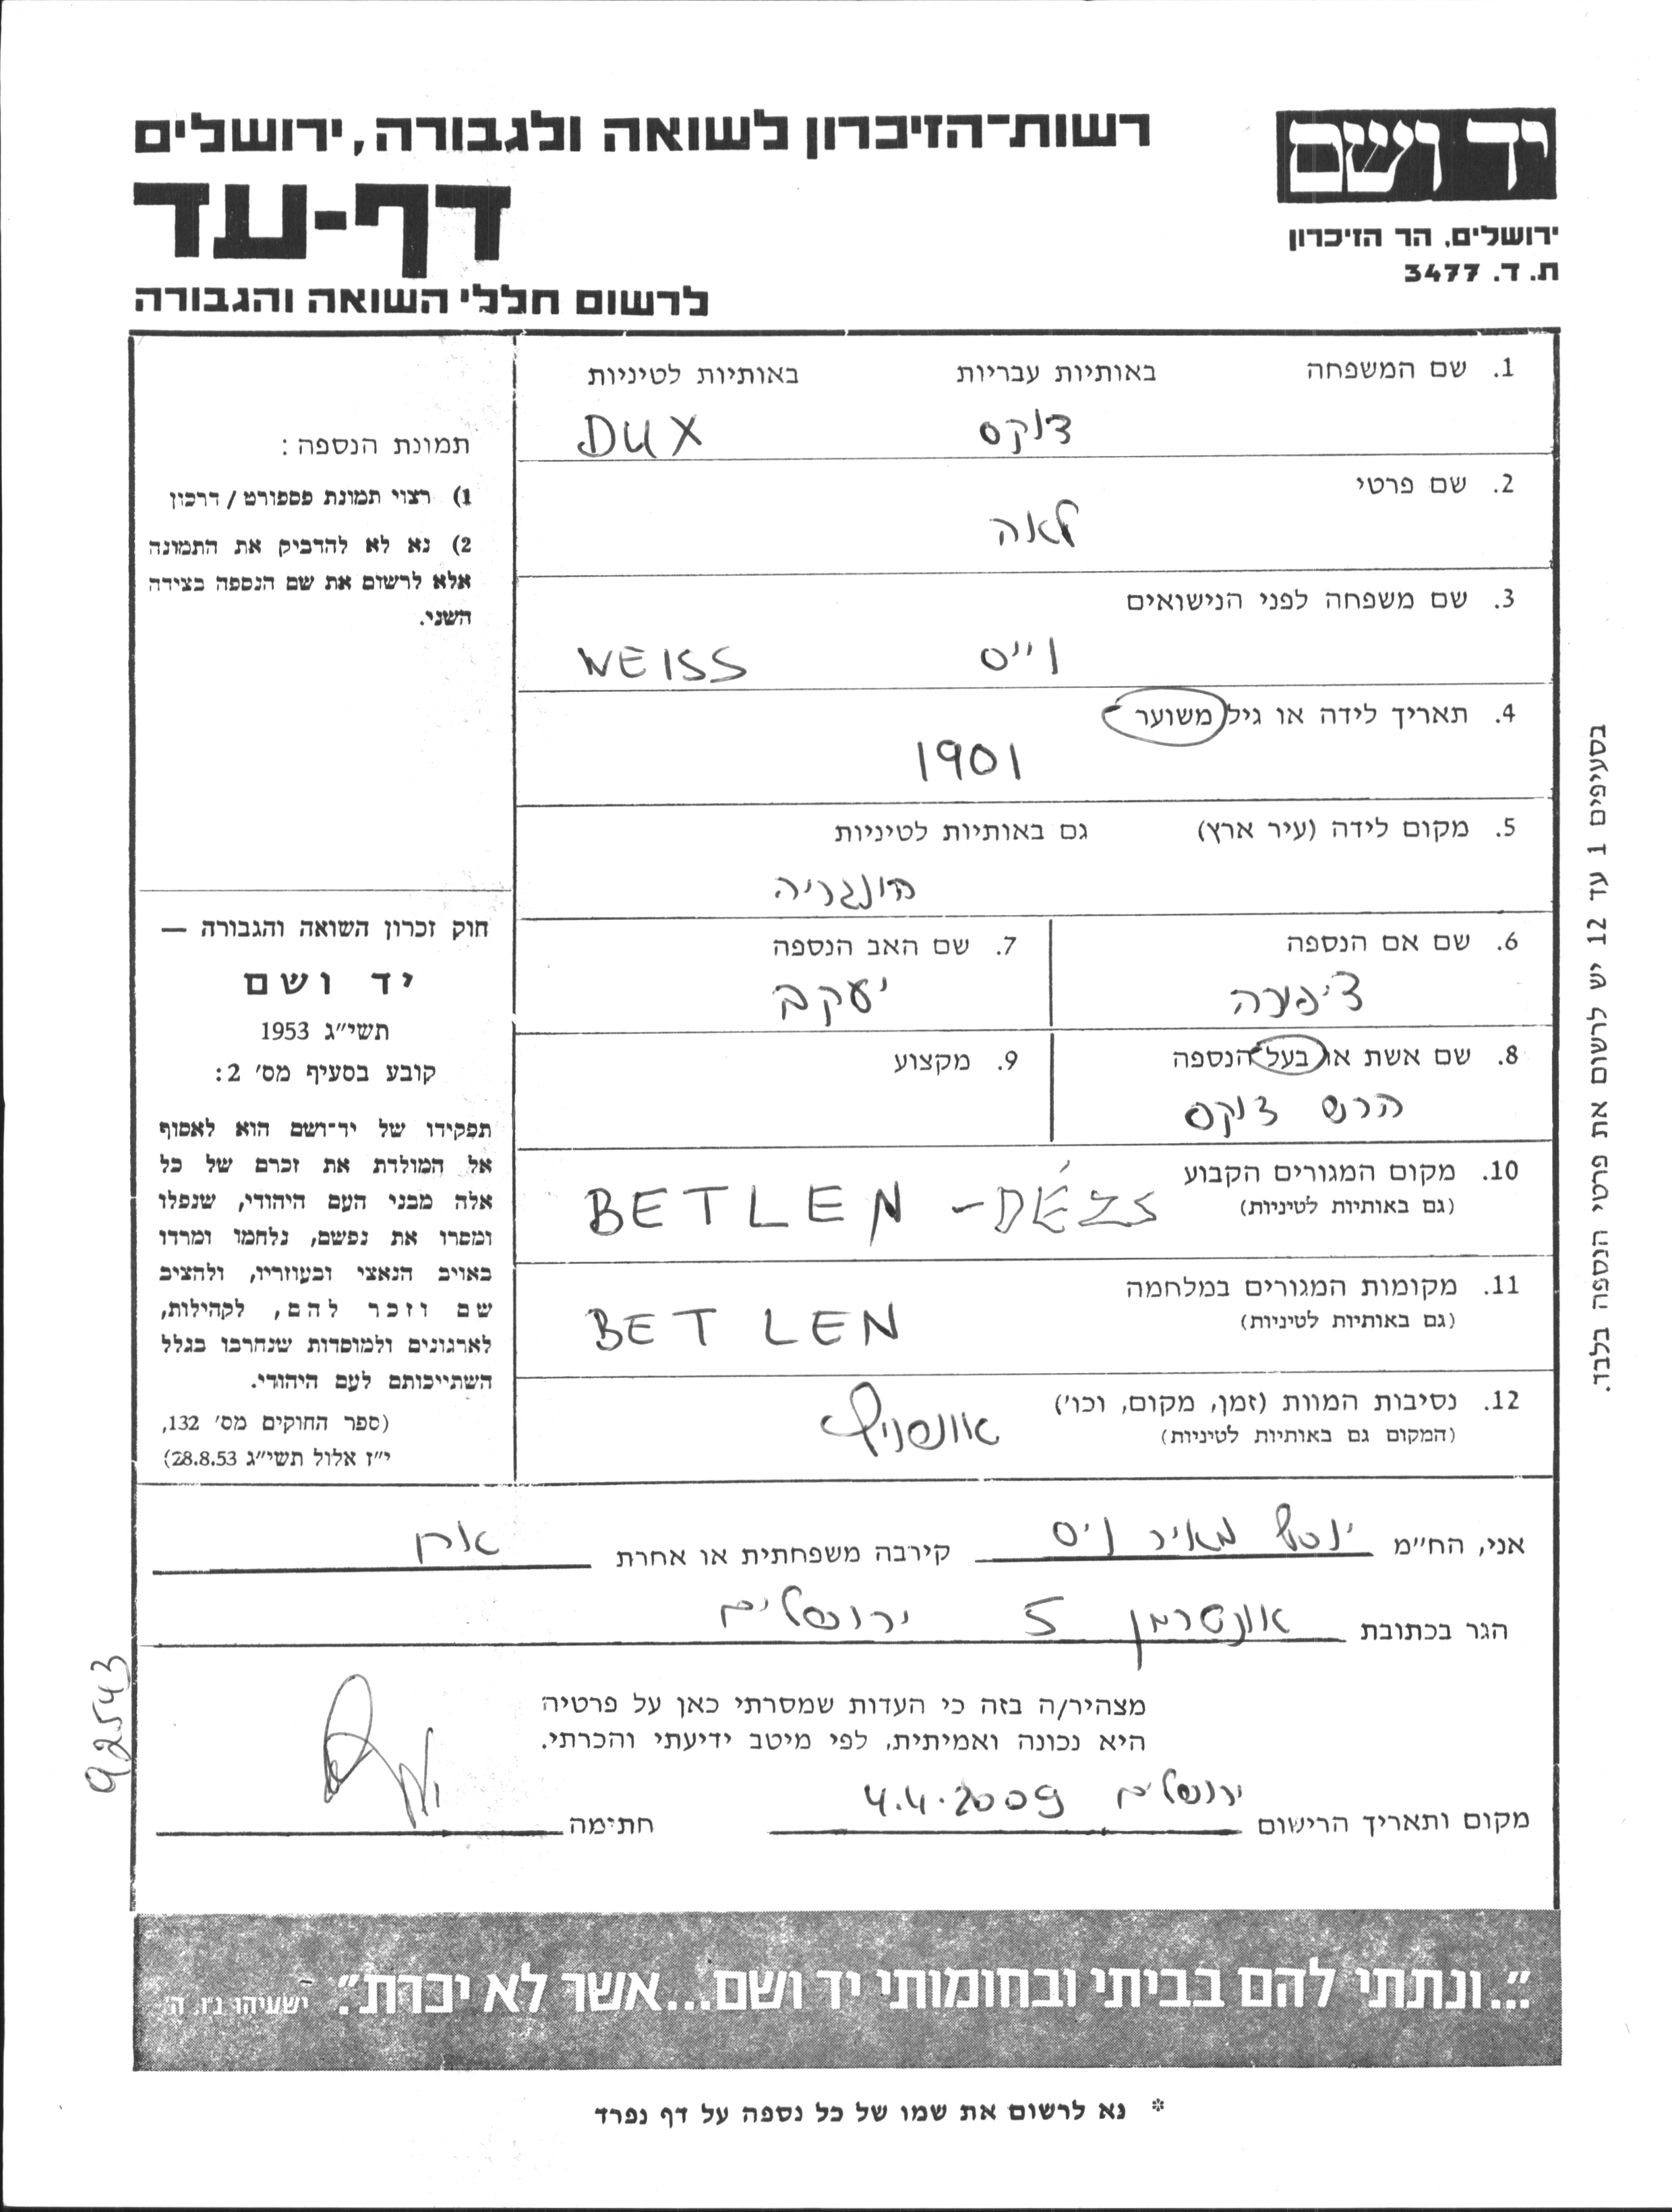 יד ושם
ירושלים, הר הזיכרון
ת. ד. 3477
רשות־הזיכרון לשואה ולגבורה, ירושלים
דף-עד
לרשום חללי השואה והגבורה
1. שם המשפחה באותיות עבריות באותיות לטיניות
דוקס DUX
2. שם פרטי
לאה
3. שם משפחה לפני הנישואים
וייס WEISS
4. תאריך לידה או גיל משוער
1901
5. מקום לידה (עיר ארץ) גם באותיות לטיניות
הונגריה
6. שם אם הנספה
ציפורה
7. שם האב הנספה
יעקב
8. שם אשת או בעל הנספה
הרש דוקס
9. מקצוע
10. מקום המגורים הקבוע
(גם באותיות לטיניות)
BETLEN - DÉZS
11. מקומות המגורים במלחמה
(גם באותיות לטיניות)
BETLEN
12. נסיבות המוות (זמן, מקום, וכו')
(המקום גם באותיות לטיניות)
תמונת הנספה:
1) רצוי תמונת פספורט / דרכון
2) נא לא להדביק את התמונה
אלא לרשום את שם הנספה בצידה
השני.
חוק זכרון השואה והגבורה —
יד ושם
תשי״ג 1953
קובע בסעיף מס' 2:
תפקידו של יד־ושם הוא לאסוף
אל המולדת את זכרם של כל
אלה מבני העם היהודי, שנפלו
ומסרו את נפשם, נלחמו ומרדו
באויב הנאצי ובעוזריו, ולהציב
שם וזכר להם, לקהילות,
לארגונים ולמוסדות שנחרבו בגלל
השתייכותם לעם היהודי.
(ספר החוקים מס' 132,
י״ז אלול תשי״ג 28.8.53)
בסעיפים 1 עד 12 יש לרשום את פרטי הנספה בלבד.
אני, הח״מ יוסף מאיר ויס קירבה משפחתית או אחרת אחן
הגר בכתובת אונטרמן 5 ירושלים
מצהיר/ה בזה כי העדות שמסרתי כאן על פרטיה
היא נכונה ואמיתית, לפי מיטב ידיעתי והכרתי.
מקום ותאריך הרישום ירושלים 4.4.2009 חתימה
92543
"...ונתתי להם בביתי ובחומותי יד ושם...אשר לא יכרת". ישעיהו נ״ו, ה'
* נא לרשום את שמו של כל נספה על דף נפרד